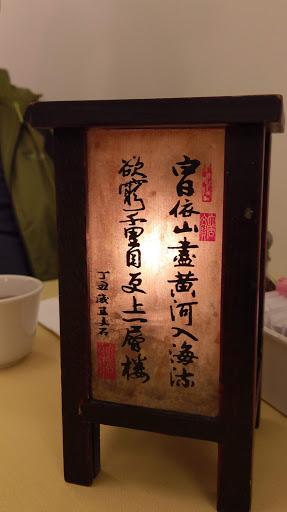 白日依山盡黃河入海流
欲窮千里目更上一層樓
丁丑歲